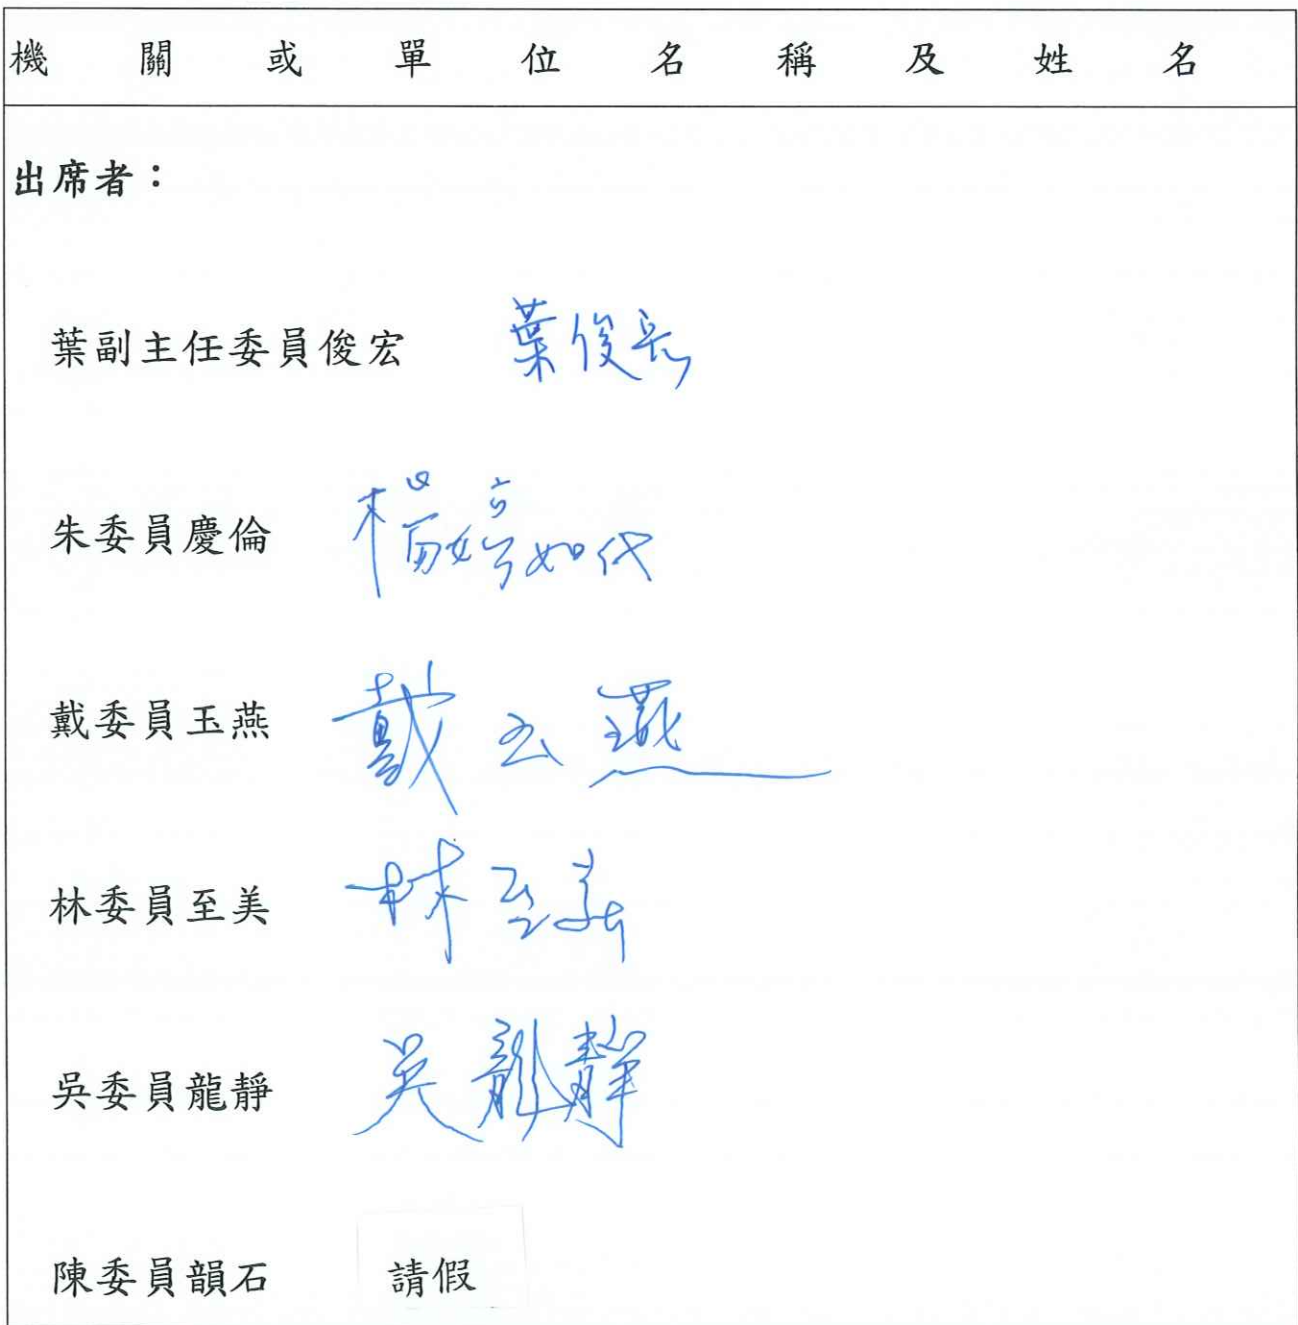 機關或單位名稱及姓名
出席者：
葉副主任委員俊宏 葉俊宏
朱委員慶倫 楊婷如代
戴委員玉燕 戴玉燕
林委員至美 林至美
吳委員龍靜 吳龍靜
陳委員韻石 請假